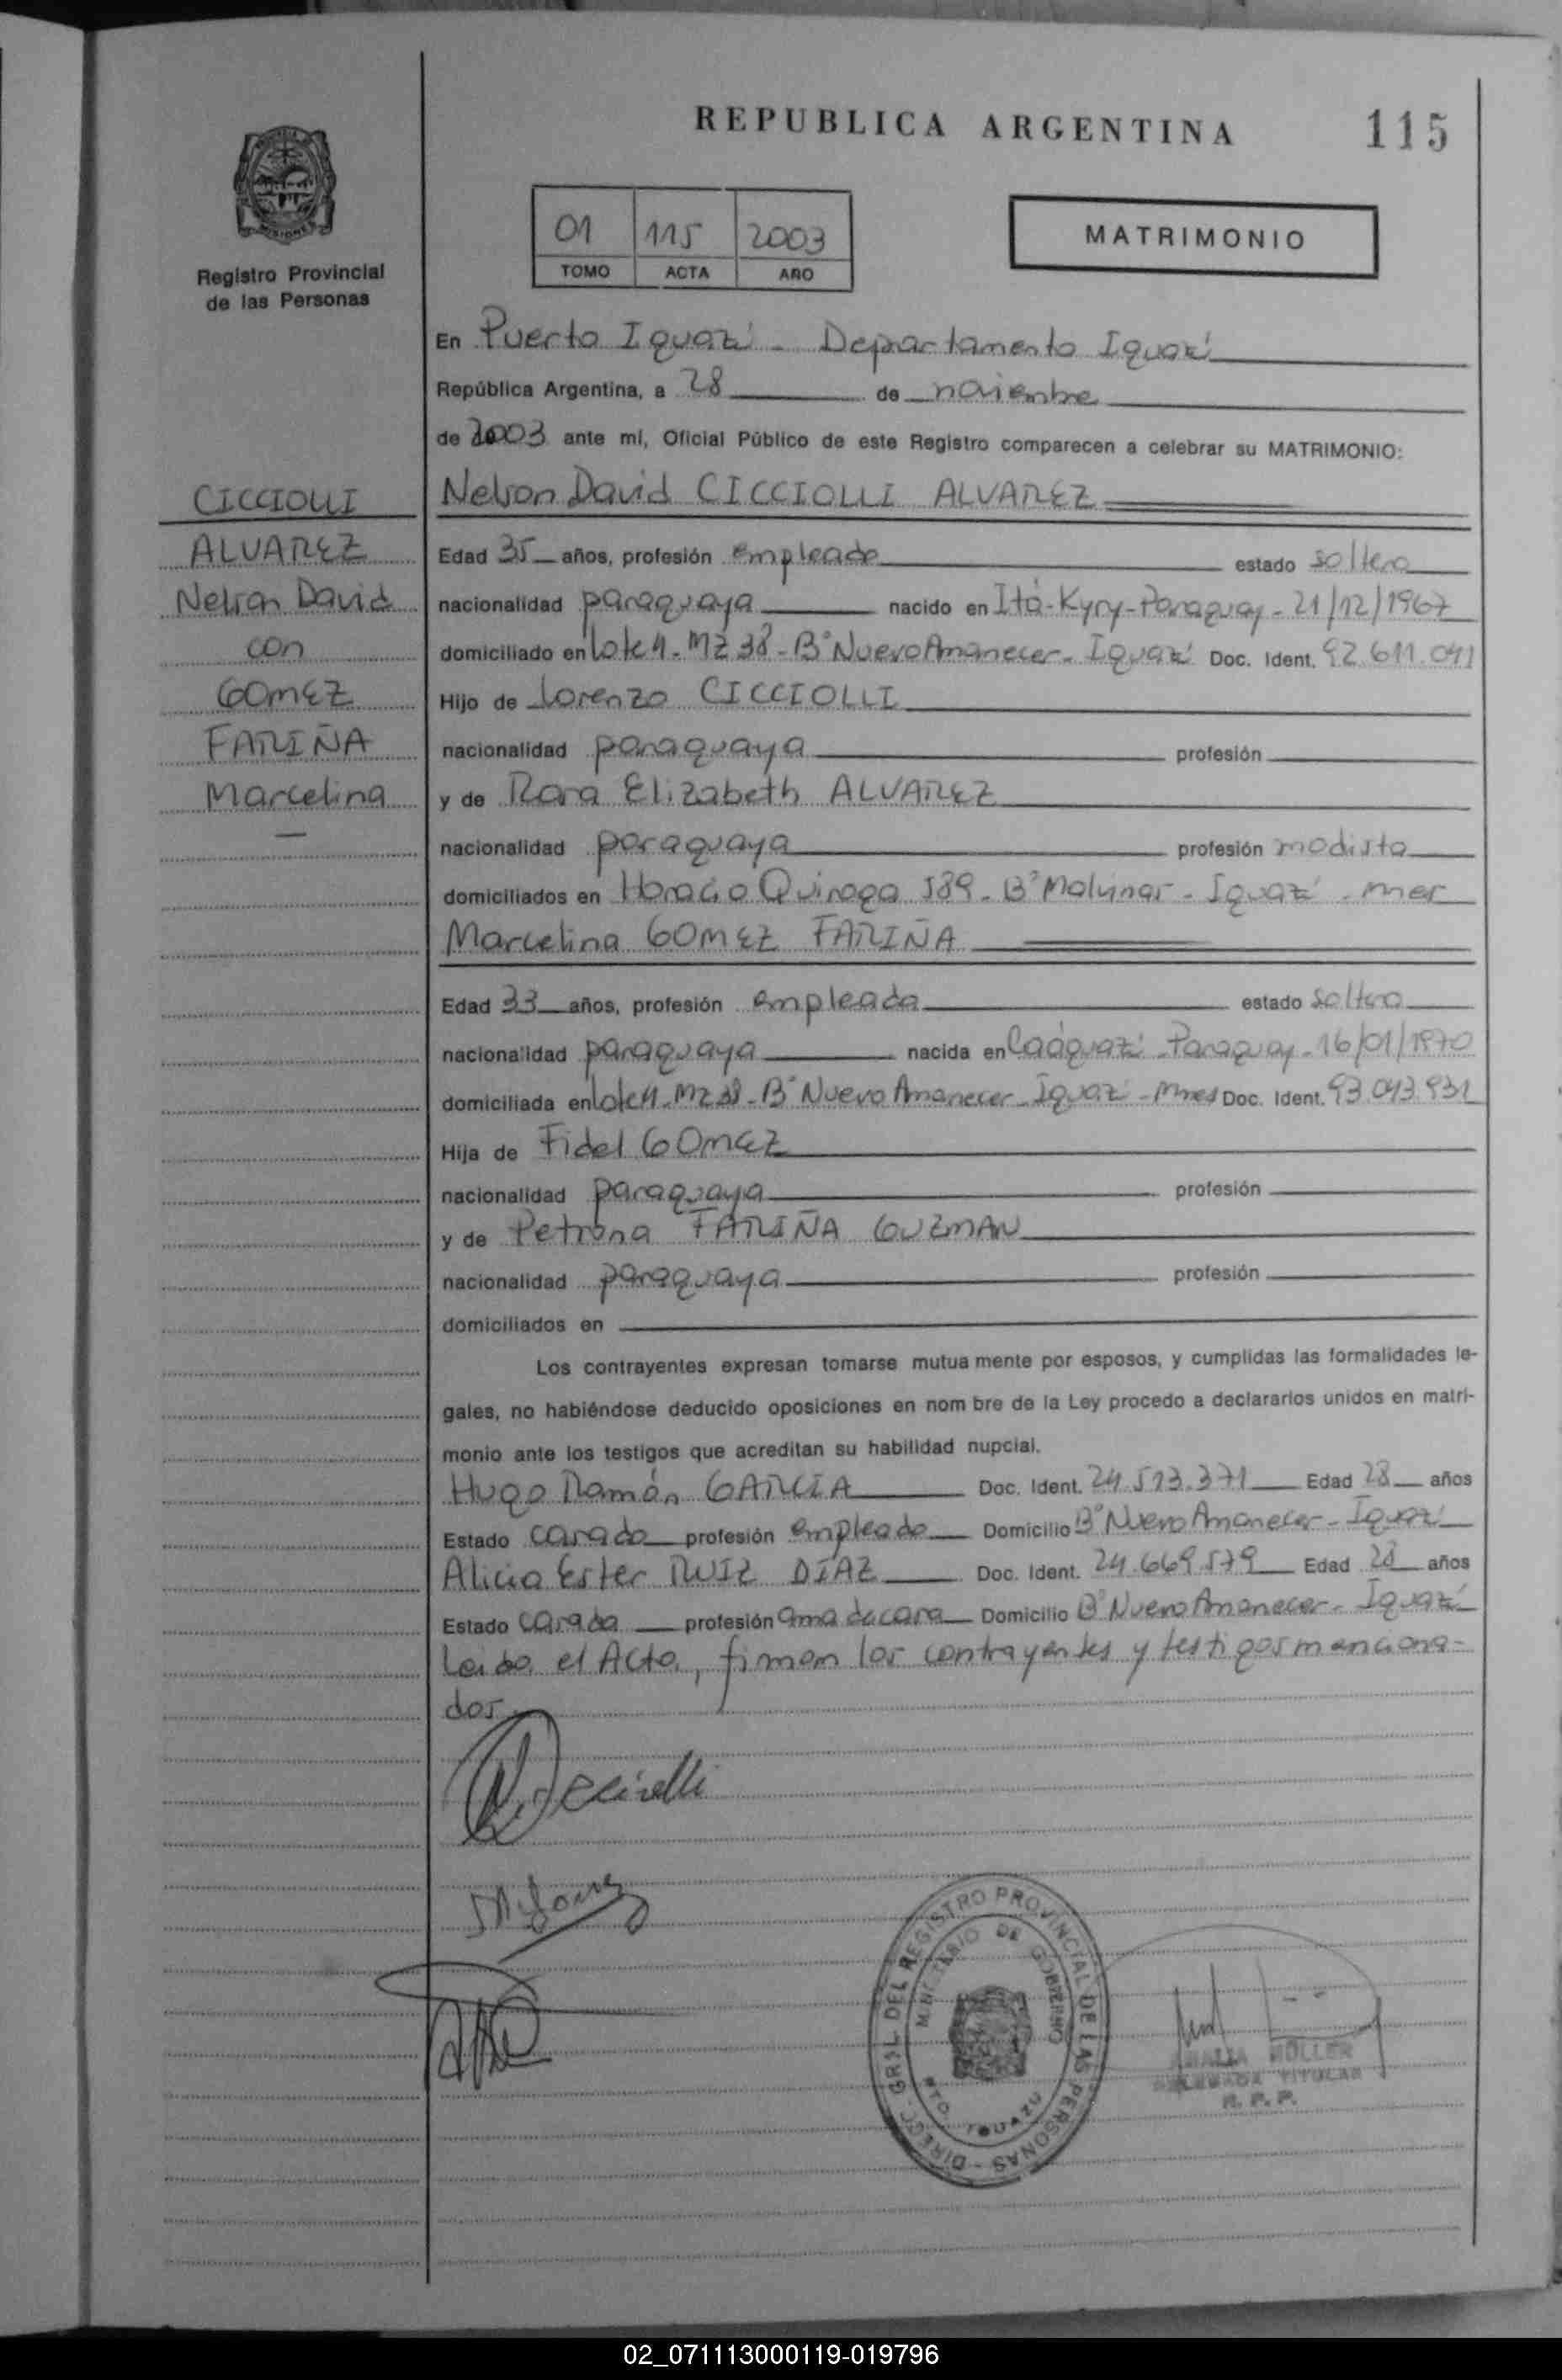 REPUBLICA ARGENTINA
115
01 115 2003
TOMO ACTA AÑO
MATRIMONIO
Registro Provincial
de las Personas
En Puerto Iguazú - Departamento Iguazú
República Argentina, a 28 de noviembre
de 2003 ante mí, Oficial Público de este Registro comparecen a celebrar su MATRIMONIO:
CICCIOLLI
ALVAREZ
Nelson David
con
GOMEZ
FARIÑA
Marcelina
Nelson David CICCIOLLI ALVAREZ
Edad 35 años, profesión empleado estado soltero
nacionalidad paraguaya nacido en Itá-Kyry-Paraguay - 21/12/1967
domiciliado en lote 4 - MZ 38 - B° Nuevo Amanecer - Iguazú Doc. Ident. 92.611.041
Hijo de Lorenzo CICCIOLLI
nacionalidad paraguaya profesión
y de Rosa Elizabeth ALVAREZ
nacionalidad paraguaya profesión modista
domiciliados en Horacio Quiroga 589 - B° Malvinas - Iguazú - mnes
Marcelina GOMEZ FARIÑA
Edad 33 años, profesión empleada estado soltera
nacionalidad paraguaya nacida en Caáguazú - Paraguay - 16/01/1970
domiciliada en lote 4 - MZ 38 - B° Nuevo Amanecer - Iguazú - Mnes Doc. Ident. 93.043.931
Hija de Fidel GOMEZ
nacionalidad paraguaya profesión
y de Petrona FARIÑA GUZMAN
nacionalidad paraguaya profesión
domiciliados en
Los contrayentes expresan tomarse mutua mente por esposos, y cumplidas las formalidades le-
gales, no habiéndose deducido oposiciones en nom bre de la Ley procedo a declararlos unidos en matri-
monio ante los testigos que acreditan su habilidad nupcial.
Hugo Ramón GARCIA Doc. Ident. 24.513.371 Edad 28 años
Estado casado profesión empleado Domicilio B° Nuevo Amanecer - Iguazú
Alicia Ester RUIZ DIAZ Doc. Ident. 24.669.579 Edad 28 años
Estado casada profesión ama de casa Domicilio B° Nuevo Amanecer - Iguazú
Leida el Acta, firman los contrayentes y testigos menciona=
dos
DIRECC. GRAL. DEL REGISTRO PROVINCIAL DE LAS PERSONAS
MINISTERIO DE GOBIERNO
PTO. IGUAZU
AMALIA MOLLER
DELEGADA TITULAR
R. P. P.
02_071113000119-019796